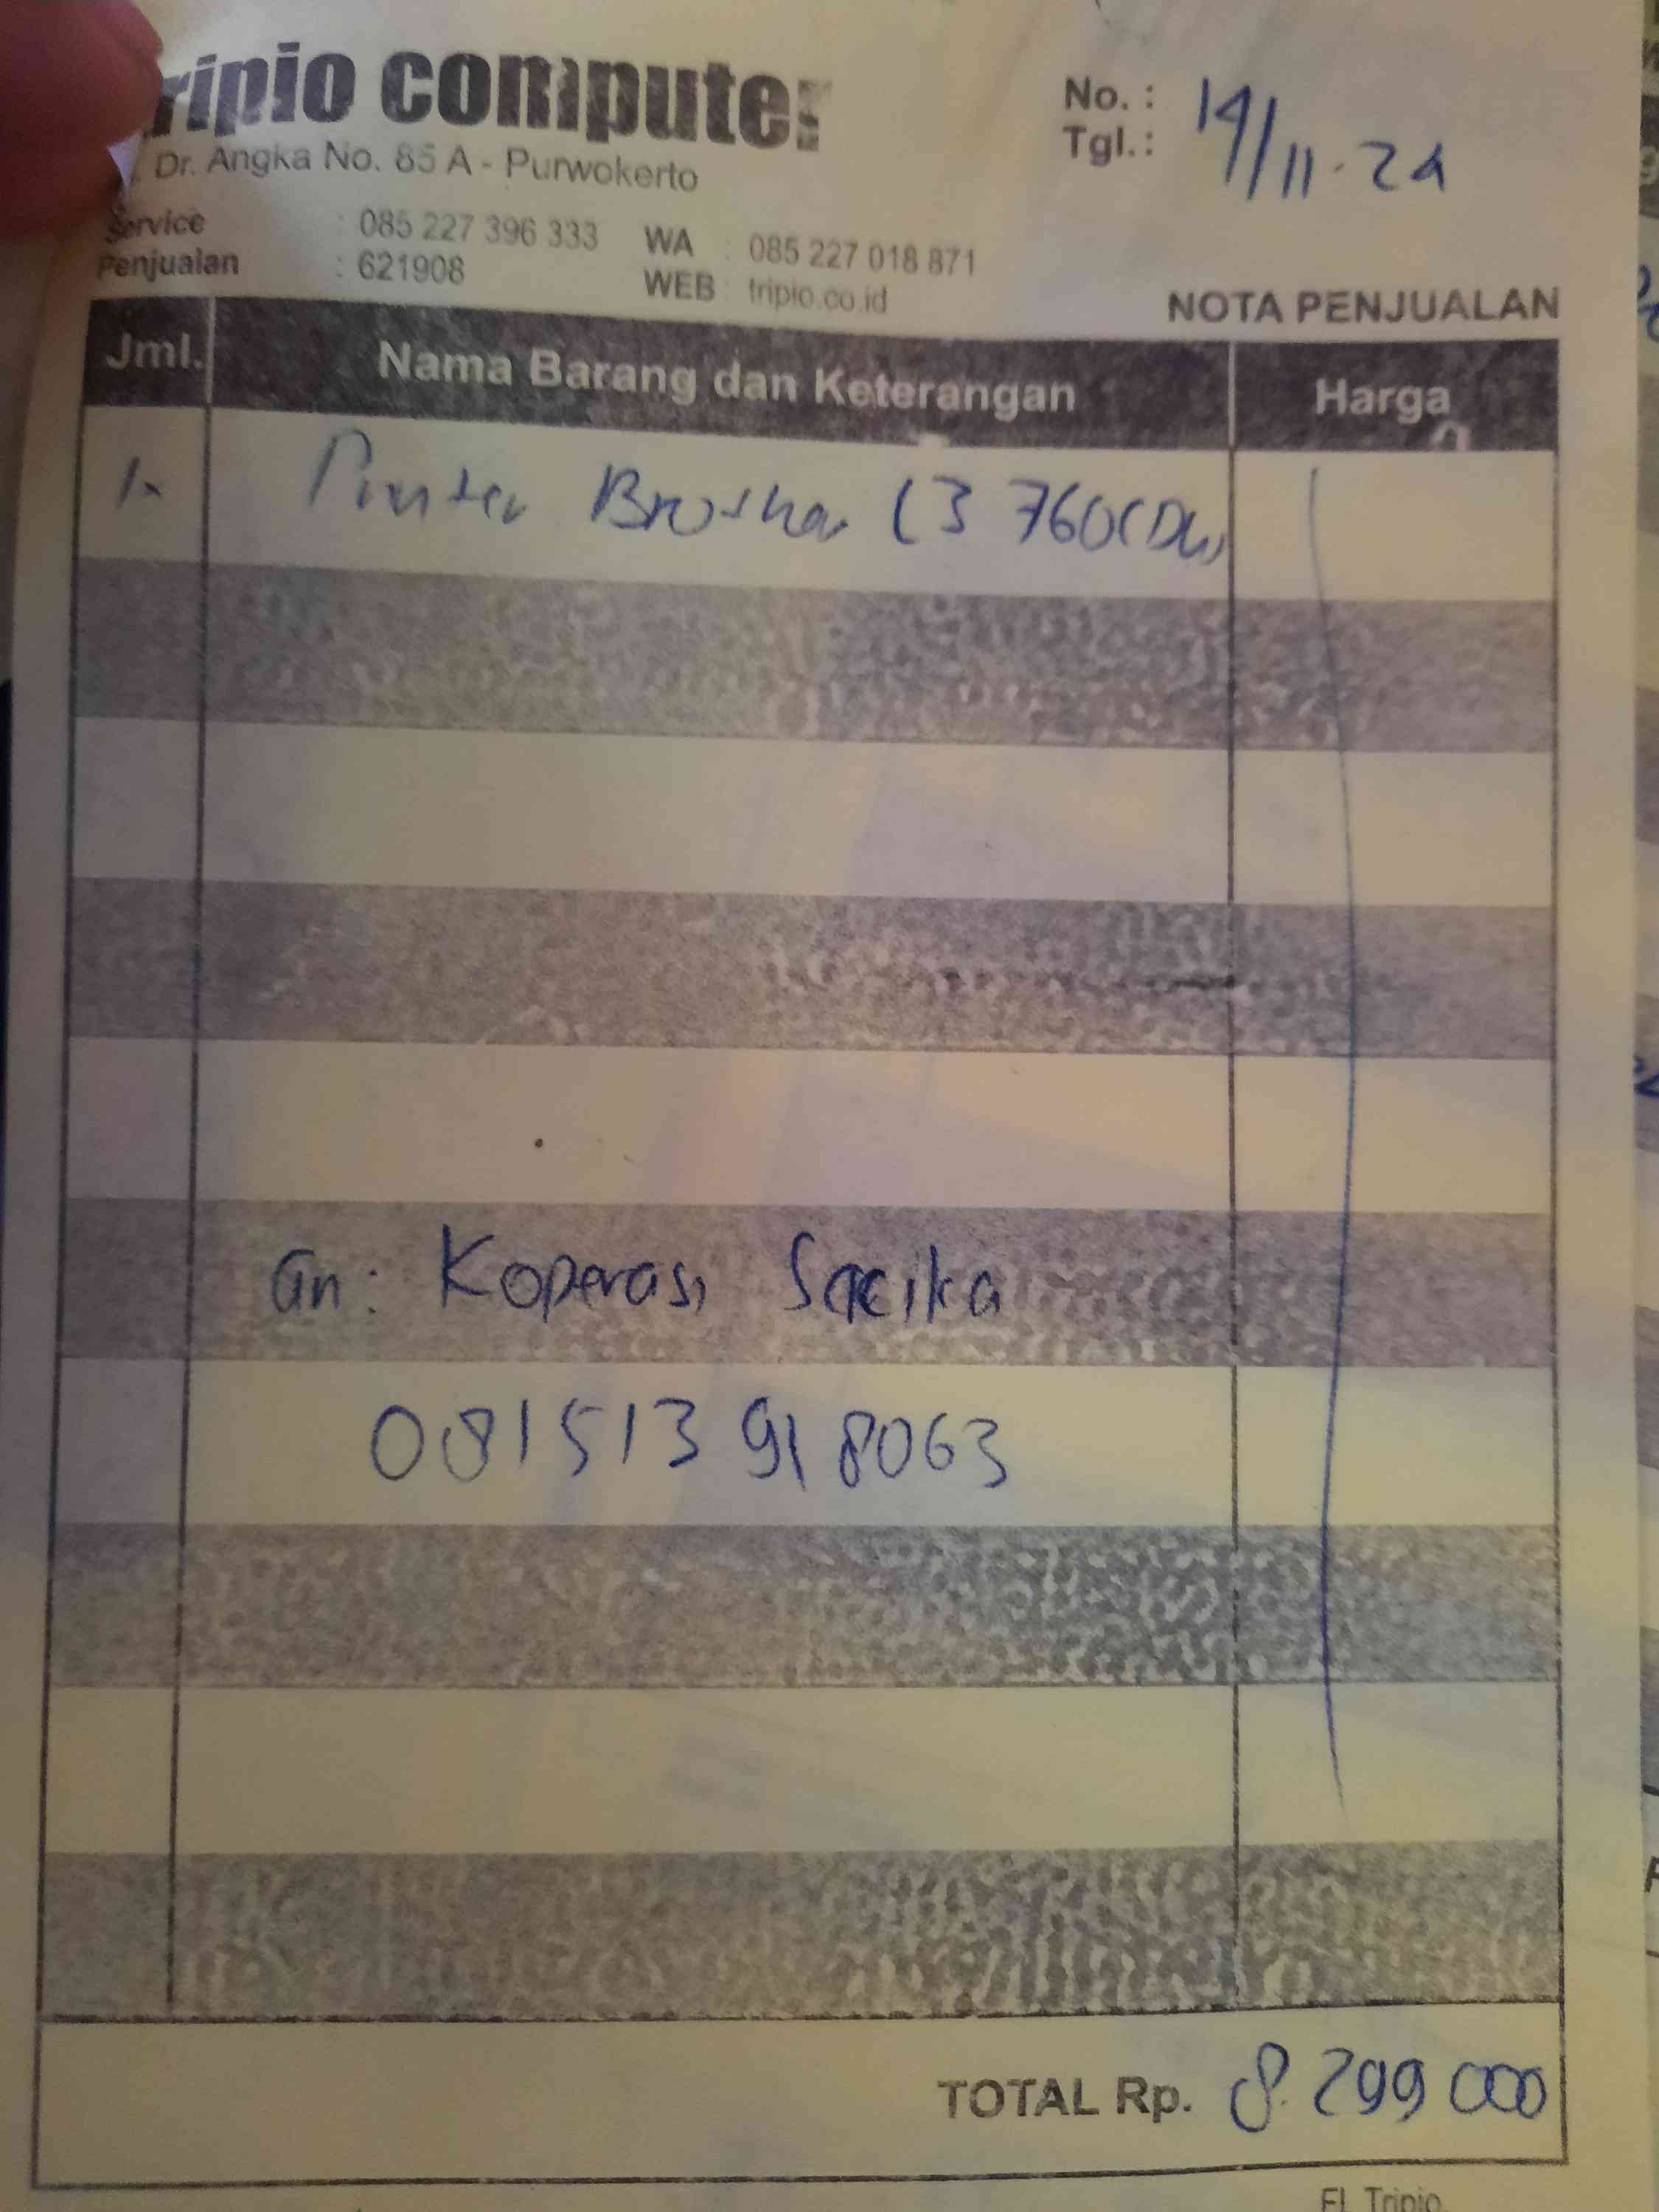 Tripio computer
Dr. Angka No. 85 A - Purwokerto
No. :
Tgl. : 14/11-24
Service : 085 227 396 333 WA : 085 227 018 871
Penjualan : 621908 WEB : tripio.co.id
NOTA PENJUALAN
Jml. Nama Barang dan Keterangan Harga
1x Printer Brother L3 760CDW
an: Koperasi Sacika
081513 918063
TOTAL Rp. 8.299 000
FL Tripio.